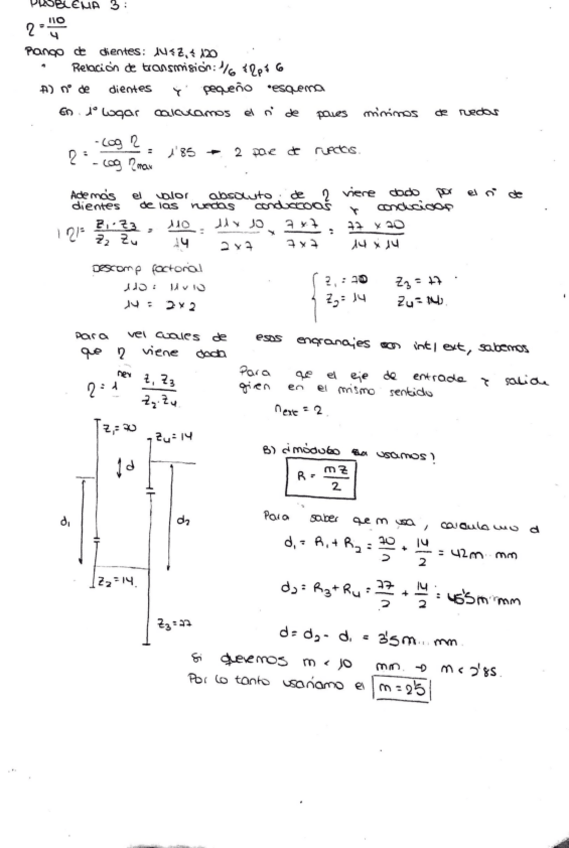 PROBLEMA 3:
η = 110/4
Rango de dientes: 14 ≤ Z₁ ≤ 120
• Relación de transmisión: 1/6 ≤ ηp ≤ 6
A) nº de dientes y pequeño esquema
En 1º lugar calculamos el nº de pares mínimos de ruedas
η = -log η / -log ηmax = 1'85 → 2 pares de ruedas.
Además el valor absoluto de η viene dado por el nº de
dientes de las ruedas conductoras y conducidas
|η| = Z₁·Z₃ / Z₂ Z₄ = 110/14 = 11 x 10 / 2 x 7 x 7 x 7 / 7 x 7 = 77 x 70 / 14 x 14
Descomp factorial
110 = 11 x 10
14 = 2 x 2
{ Z₁ = 70 Z₃ = 77
Z₂ = 14 Z₄ = 14
Para ver cuales de esos engranajes son int/ext, sabemos
que η viene dada
η = 1 nex Z₁ Z₃ / Z₂·Z₄
Para que el eje de entrada y salida
giren en el mismo sentido
next = 2
Z₁=70
Z₄=14
d
d₁
d₂
Z₂=14.
Z₃=77
B) ¿módulo usamos?
R = mZ/2
Para saber que m usa, calculamos d
d₁ = R₁ + R₂ = 70/2 + 14/2 = 42m mm
d₂ = R₃ + R₄ = 77/2 + 14/2 = 45'5m mm
d = d₂ - d₁ = 3'5m... mm.
Si queremos m < 10 mm → m < 2'85.
Por lo tanto usaríamos el m = 2'5